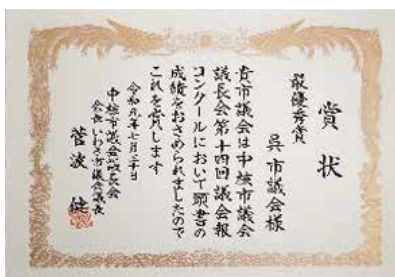 賞状
最優秀賞
呉市議会様
貴市議会は中核市議会
議長会第十四回議会報
コンクールにおいて頭書の
成績をおさめられましたので
これを賞します
令和元年七月三十日
中核市議会議長会
会長 いわき市議会議長
菅波 健